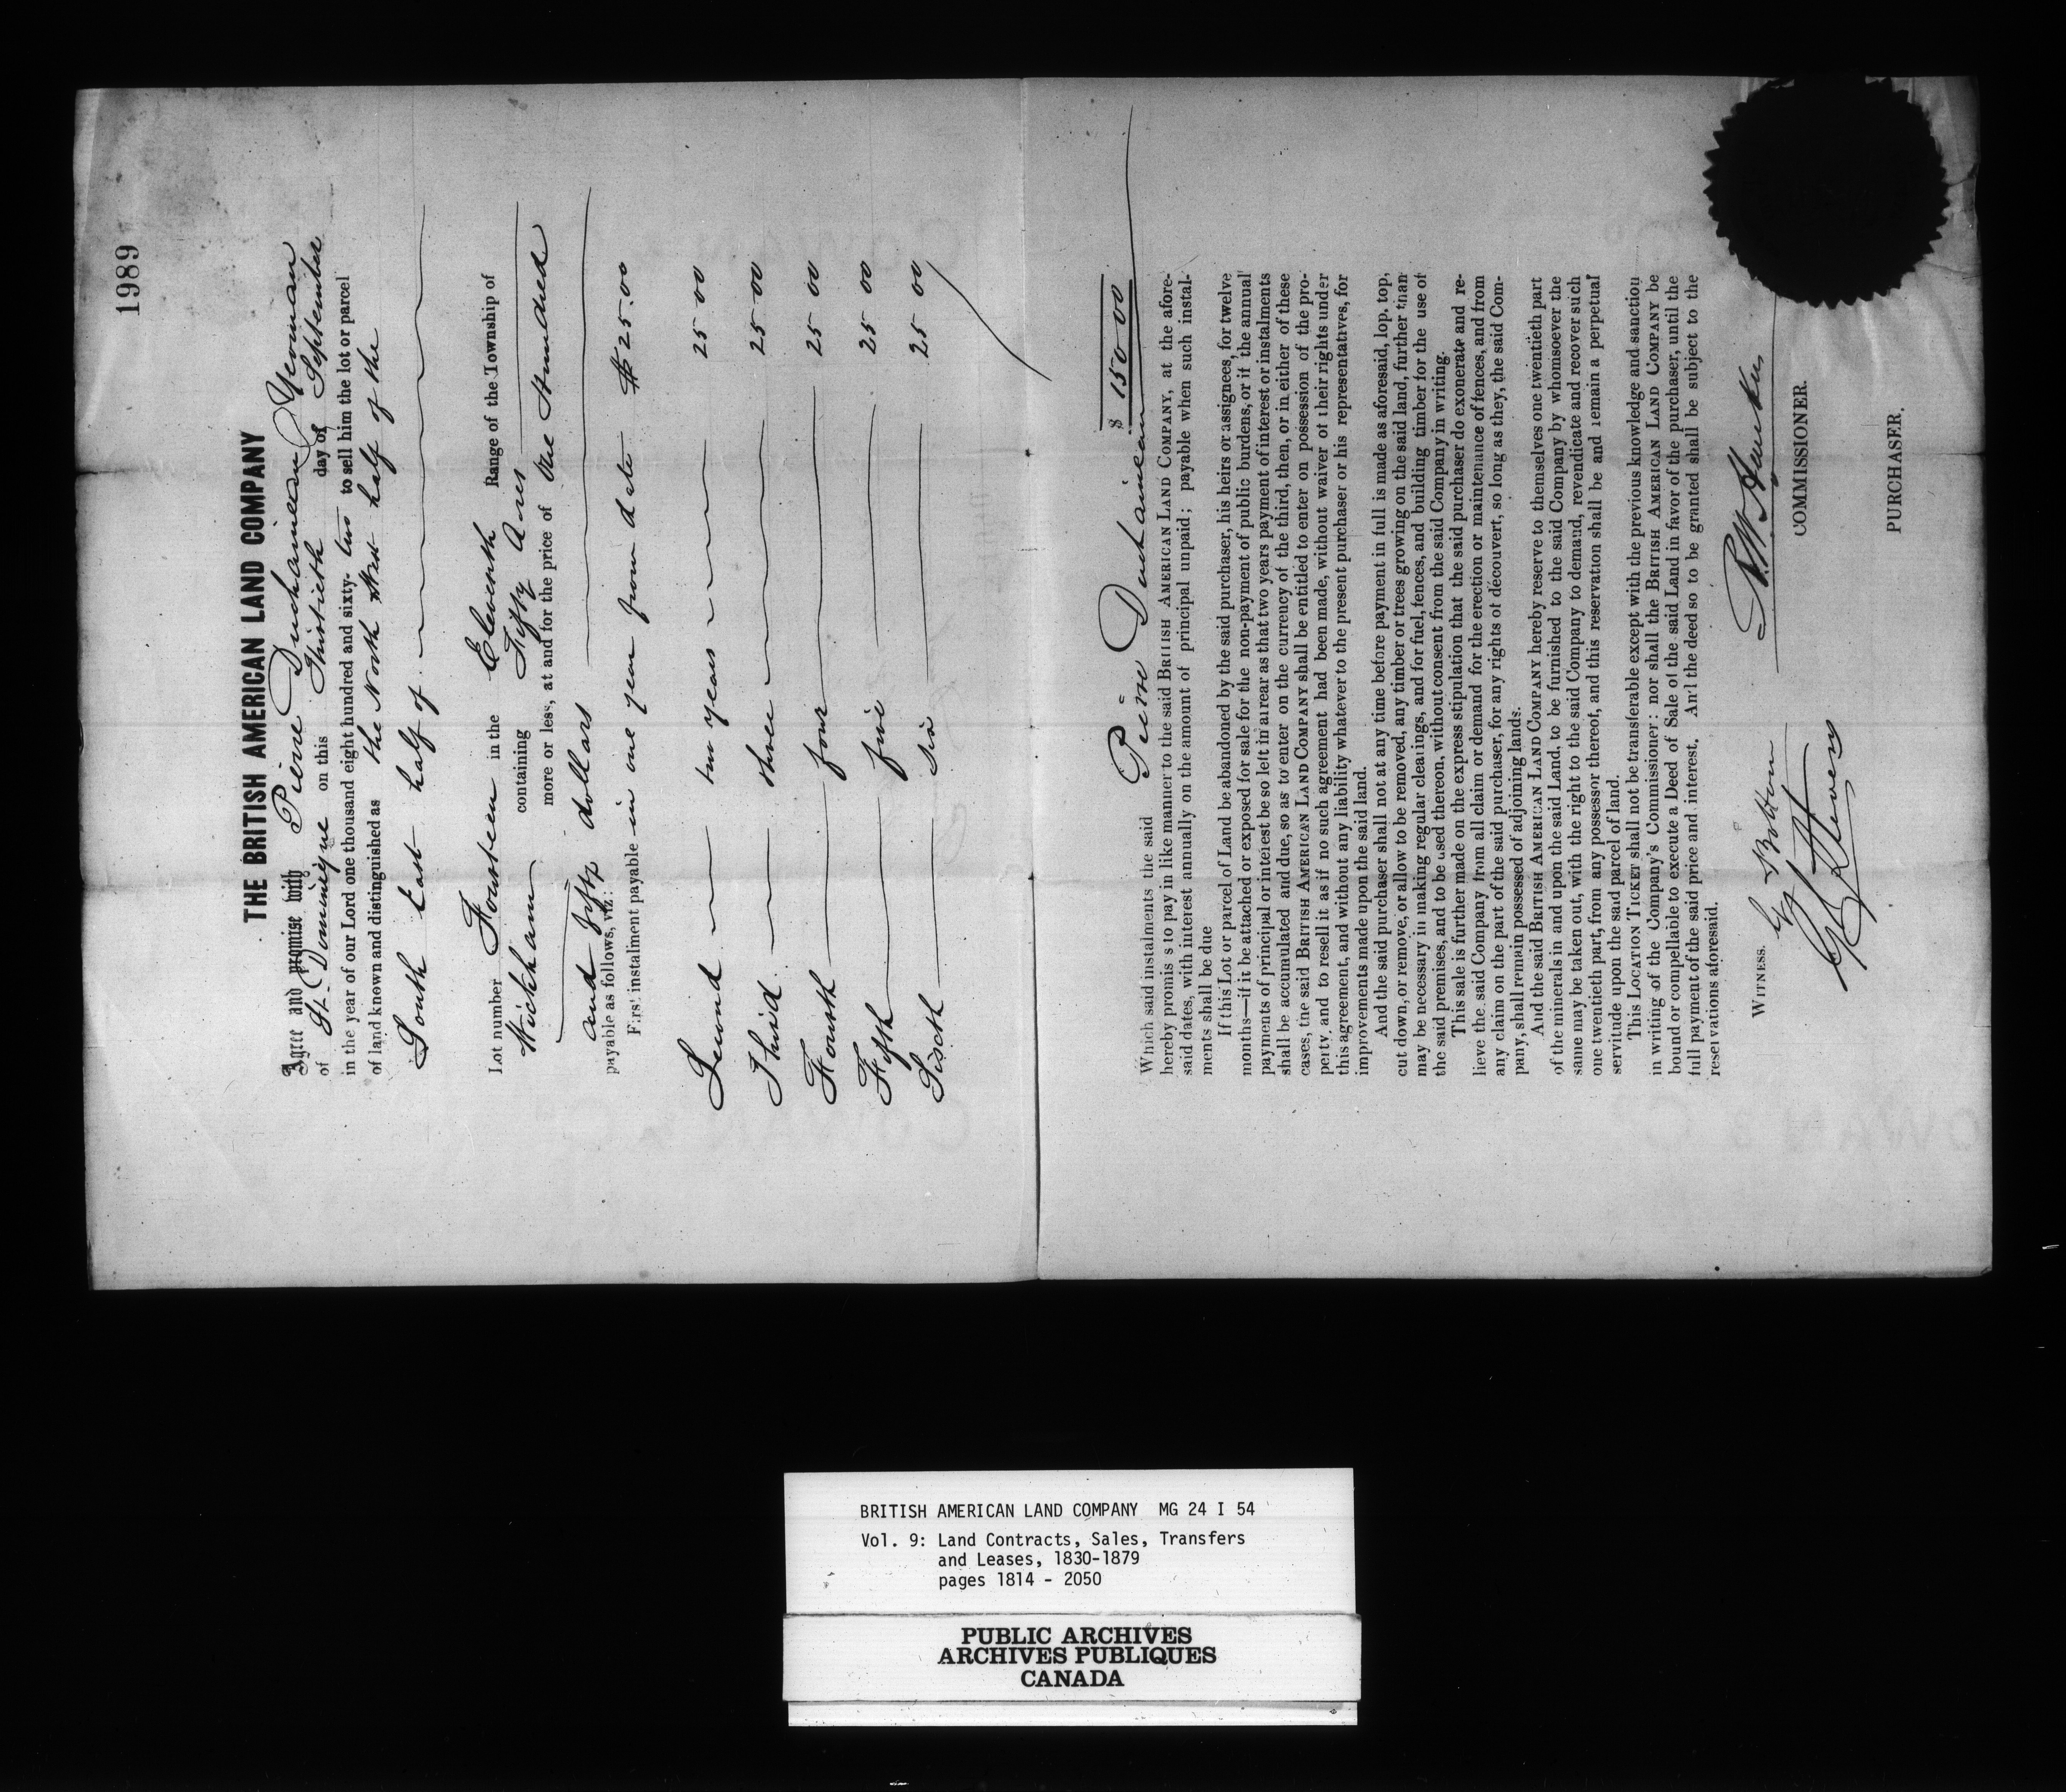 1989
THE BRITISH AMERICAN LAND COMPANY
Agree and promise with Pierre Duchaineau Yeoman
of St. Dominique on this Thirtieth day of September
in the year of our Lord one thousand eight hundred and sixty- two to sell him the lot or parcel
of land known and distinguished as the North West half of the
South East half of
Lot number Fourteen in the Eleventh Range of the Township of
Wickham containing Fifty Acres
more or less, at and for the price of One Hundred
and fifty dollars
payable as follows, viz.:
First instalment payable in one year from date $25.00
Second two years 25 00
Third three 25 00
Fourth four 25 00
Fifth five 25 00
Sixth six 25 00
$ 150 00
Which said instalments the said Pierre Duchaineau
hereby promises to pay in like manner to the said BRITISH AMERICAN LAND COMPANY, at the afore-
said dates, with interest annually on the amount of principal unpaid; payable when such instal-
ments shall be due
If this Lot or parcel of Land be abandoned by the said purchaser, his heirs or assignees, for twelve
months—if it be attached or exposed for sale for the non-payment of public burdens, or if the annual
payments of principal or interest be so left in arrear as that two years payment of interest or instalments
shall be accumulated and due, so as to enter on the currency of the third, then, or in either of these
cases, the said BRITISH AMERICAN LAND COMPANY shall be entitled to enter on possession of the pro-
perty and to resell it as if no such agreement had been made, without waiver of their rights under
this agreement, and without any liability whatever to the present purchaser or his representatives, for
improvements made upon the said land.
And the said purchaser shall not at any time before payment in full is made as aforesaid, lop, top,
cut down, or remove, or allow to be removed, any timber or trees growing on the said land, further than
may be necessary in making regular clearings, and for fuel, fences, and building timber for the use of
the said premises, and to be used thereon, without consent from the said Company in writing.
This sale is further made on the express stipulation that the said purchaser do exonerate and re-
lieve the said Company from all claim or demand for the erection or maintenance of fences, and from
any claim on the part of the said purchaser, for any rights of découvert, so long as they, the said Com-
pany, shall remain possessed of adjoining lands.
And the said BRITISH AMERICAN LAND COMPANY hereby reserve to themselves one twentieth part
of the minerals in and upon the said Land, to be furnished to the said Company by whomsoever the
same may be taken out, with the right to the said Company to demand, revendicate and recover such
one twentieth part, from any possessor thereof, and this reservation shall be and remain a perpetual
servitude upon the said parcel of land.
This LOCATION TICKET shall not be transferable except with the previous knowledge and sanction
in writing of the Company's Commissioner: nor shall the BRITISH AMERICAN LAND COMPANY be
bound or compellable to execute a Deed of Sale of the said Land in favor of the purchaser, until the
full payment of the said price and interest. And the deed so to be granted shall be subject to the
reservations aforesaid.
WITNESS.
COMMISSIONER.
PURCHASER.
BRITISH AMERICAN LAND COMPANY MG 24 I 54
Vol. 9: Land Contracts, Sales, Transfers
and Leases, 1830-1879
pages 1814 - 2050
PUBLIC ARCHIVES
ARCHIVES PUBLIQUES
CANADA